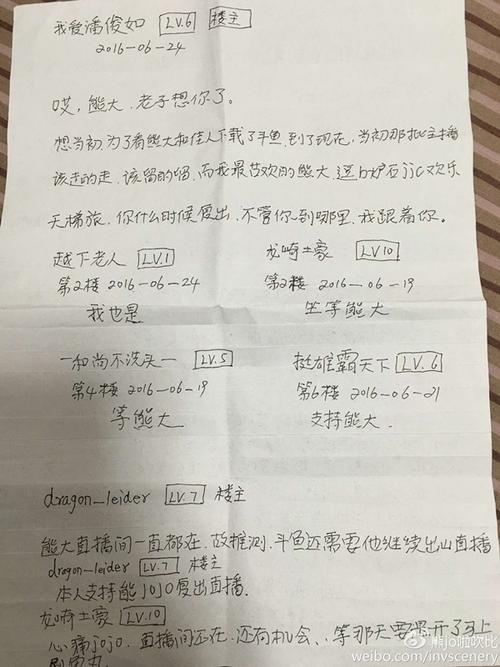 我爱潘俊如 LV.6 楼主
2016-06-24
哎，熊大，老子想你了。
想当初，为了看熊大和佳人下载了斗鱼，到了现在，当初那批主播
该走的走，该留的留，而我最喜欢的熊大，还有炉石jjc欢乐
天梯旅，你什么时候复出，不管你到哪里，我跟着你。
越下老人 LV.1
第2楼 2016-06-24
我也是
龙崎土豪 LV10
第2楼 2016-06-19
坐等熊大
一和尚不洗头一 LV.5
第4楼 2016-06-19
等熊大
挺雄霸天下 LV.6
第6楼 2016-06-21
支持熊大.
dragon_leider LV.7 楼主
熊大直播间一直都在，故推测，斗鱼还需要他继续出山直播
dragon_leider LV.7 楼主
本人支持熊JOJO复出直播.
龙崎土豪 LV.10
心疼jojo，直播间还在，还有机会、等那天要是开了马上
熊jo啪吹比
weibo.com/invscenery